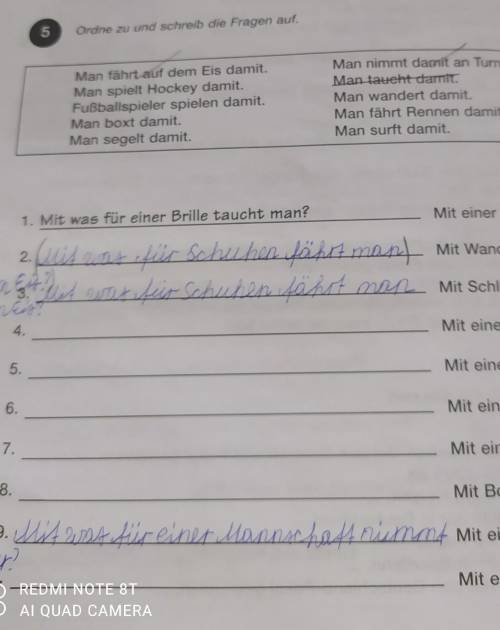 5 Ordne zu und schreib die Fragen auf.
Man fährt auf dem Eis damit.
Man spielt Hockey damit.
Fußballspieler spielen damit.
Man boxt damit.
Man segelt damit.
Man nimmt damit an Turn
Man taucht damit.
Man wandert damit.
Man fährt Rennen damit
Man surft damit.
1. Mit was für einer Brille taucht man? Mit einer
2. (Mit was für Schuhen fährt man) Mit Wand
3. Mit was für Schuhen fährt man Mit Schl
4. Mit eine
5. Mit eine
6. Mit ein
7. Mit ein
8. Mit Bo
9. Mit was für einer Mannschaft nimmt Mit ei
Mit e
REDMI NOTE 8T
AI QUAD CAMERA